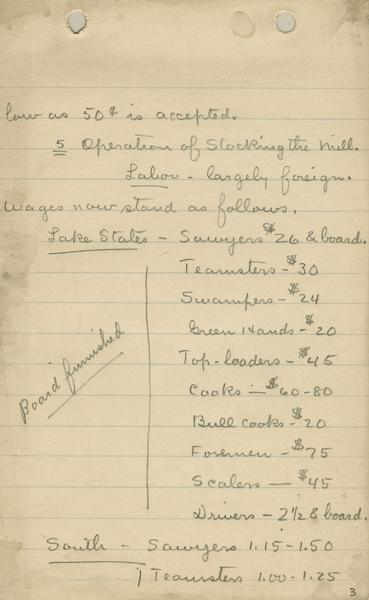 low as 50¢ is accepted.
5 Operation of Stocking the Mill.
Labor - largely foreign.
Wages now stand as follows.
Lake States - Sawyers $26 & board.
Teamsters - $30
Swampers - $24
Green Hands - $20
Top-loaders - $45
Cooks - $60-80
Board furnished
Bull cooks - $20
Foremen - $75
Scalers - $45
Drivers - 2 1/2 & board.
South - Sawyers 1.15-1.50
Teamsters 1.00-1.25
3